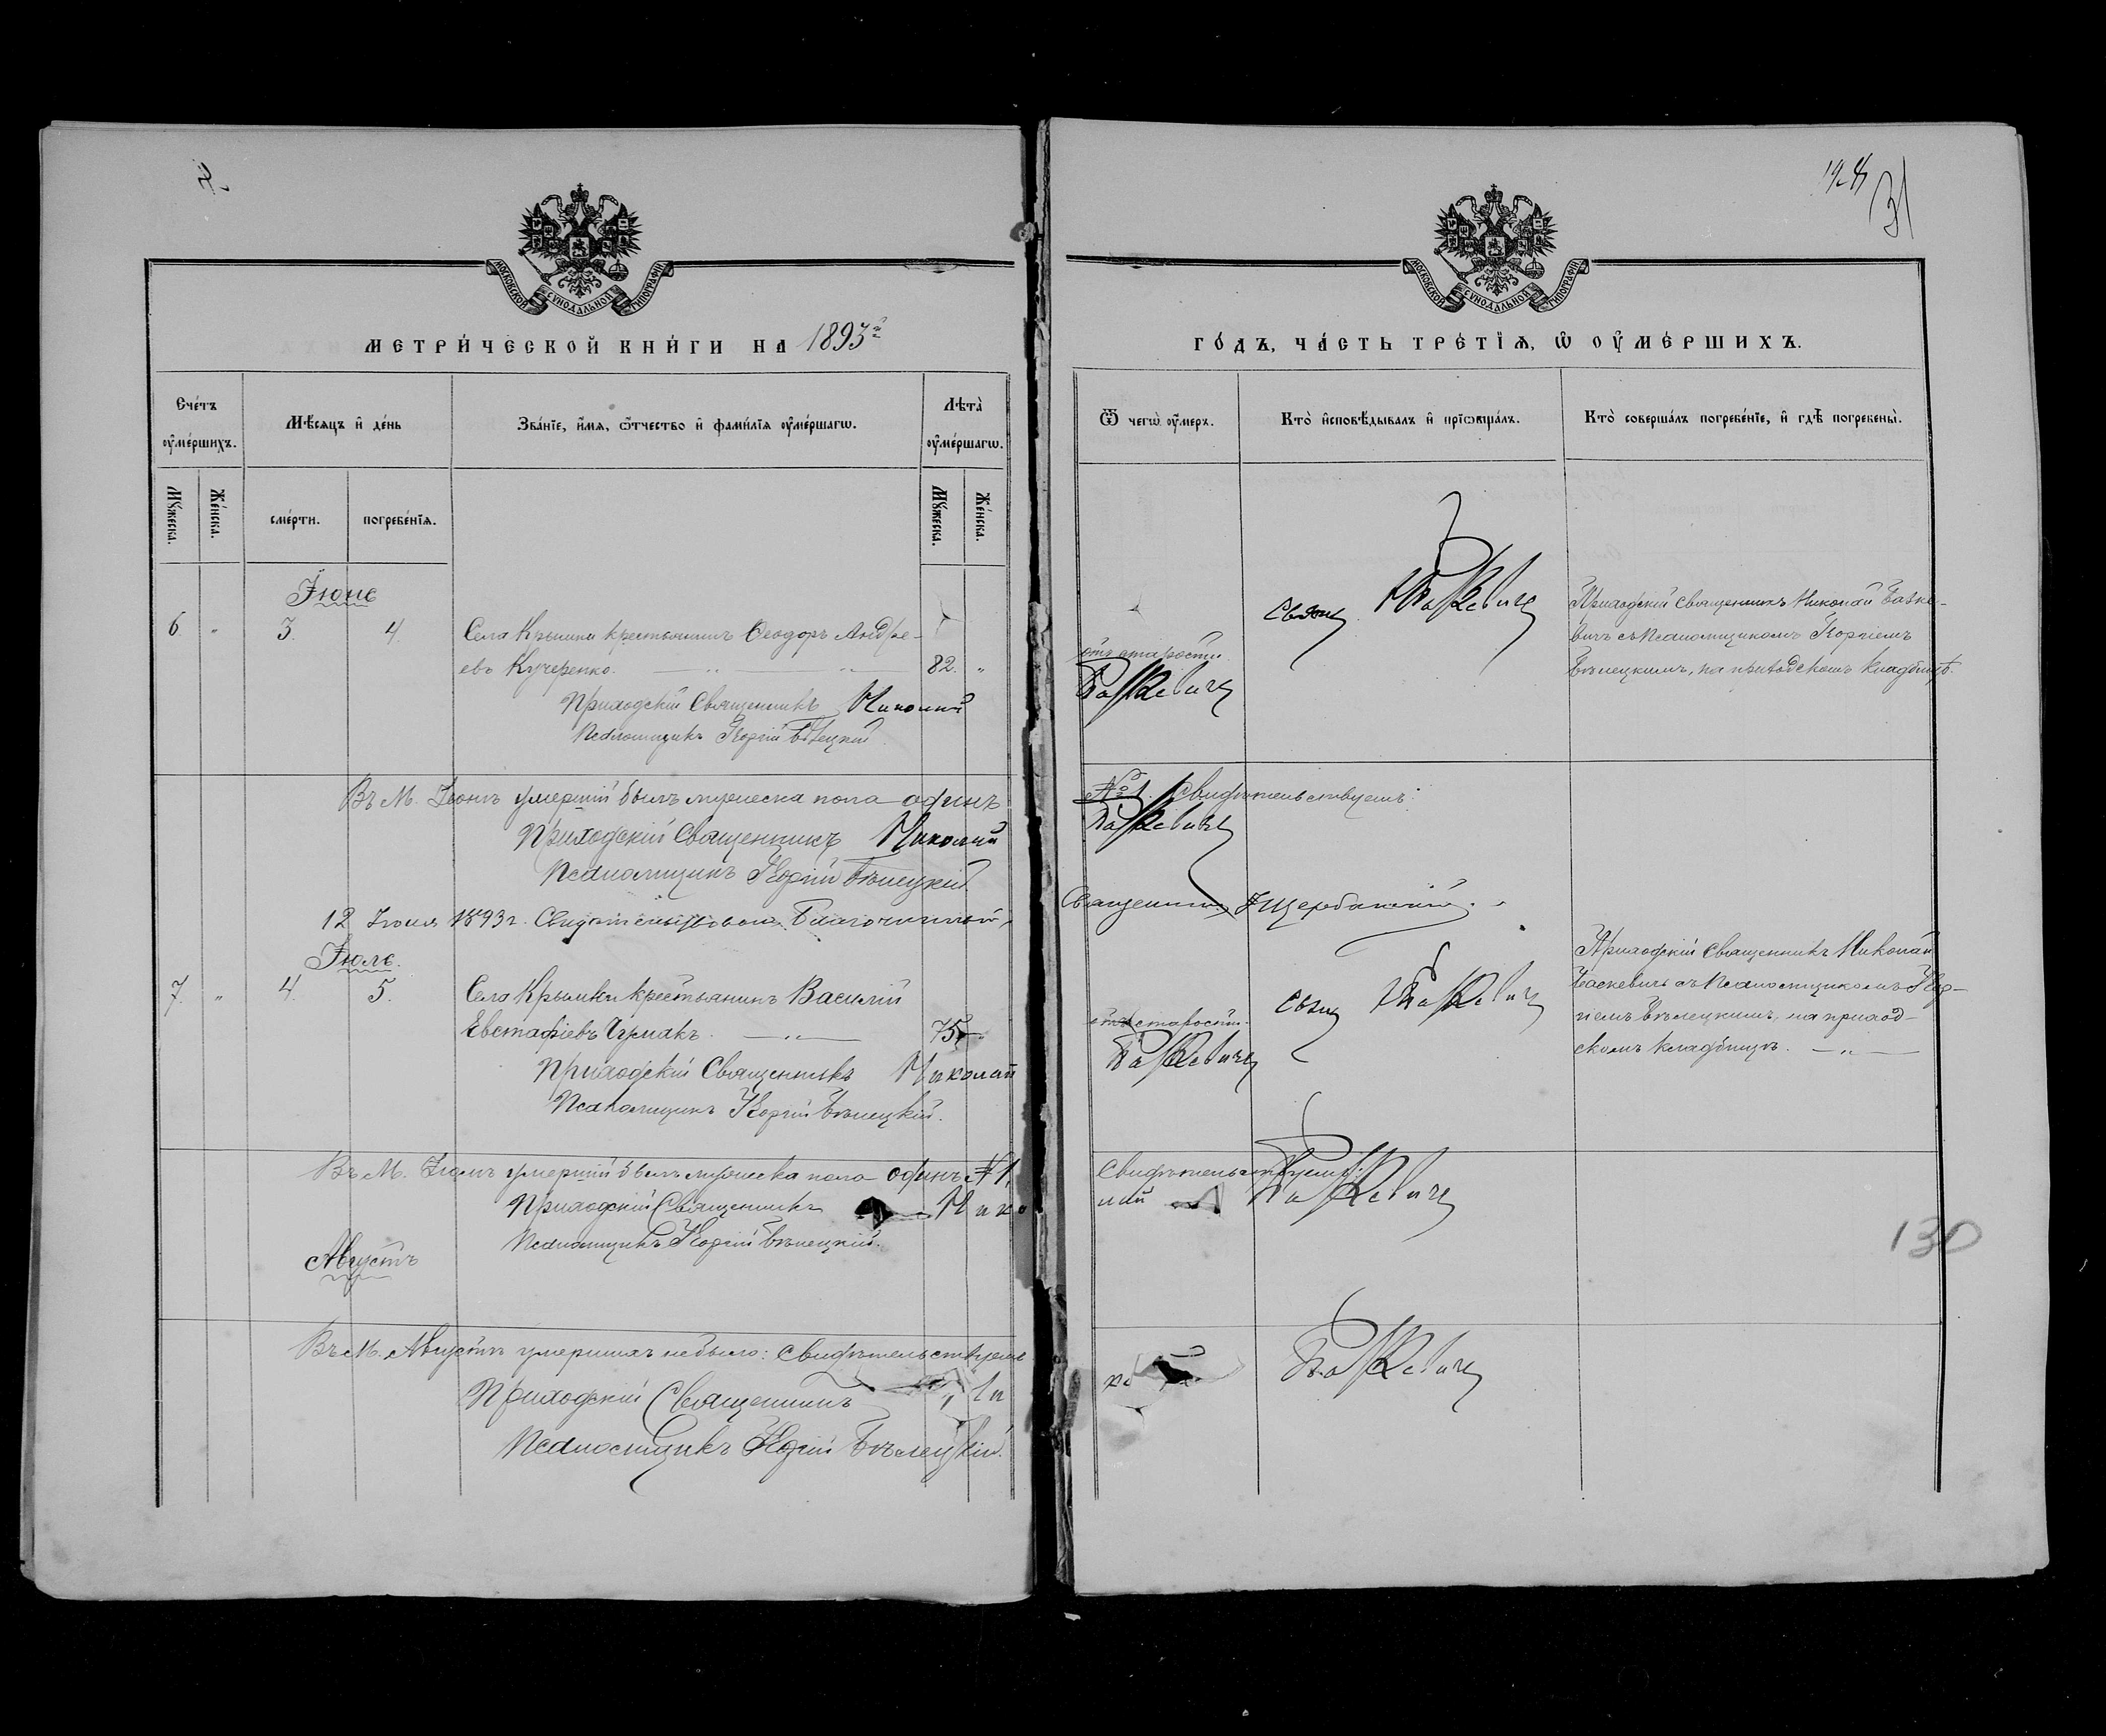 МОСКОВСКОЙ СѴНОДАЛЬНОЙ ТИПОГРАФІИ
МЕТРИ́ЧЕСКОЙ КНИ́ГИ НА 1893 г
Сче́тъ ᲂу҆ме́ршихъ.
Мѣ́сяцъ и҆ де́нь
Зва́нїе, и҆́мя, ѻ҆́тчество и҆ фами́лїя ᲂу҆ме́ршагѡ.
Лѣта̀ ᲂу҆ме́ршагѡ.
Мꙋ́жеска.
Же́нска.
сме́рти.
погребе́нїѧ.
Мꙋ́жеска.
Же́нска.
Іюнь
6 " 3. 4. Села Крымки крестьянинъ Ѳеодоръ Андре-
евъ Кучеренко. — " — " — 82. "
Приходскій Священникъ Николай
Псаломщикъ Георгій Бѣлецкій
Въ М. Іюнѣ умершій былъ мужеска пола одинъ
Приходскій Священникъ Николай
Псаломщикъ Георгій Бѣлецкій
12 Іюля 1893 г. Свидѣтельствовалъ Благочинный,
Іюль.
7. " 4. 5. Села Крымки крестьянинъ Василій
Евстафіевъ Чумакъ. — " — 75
Приходскій Священникъ Николай
Псаломщикъ Георгій Бѣлецкій.
Въ М. Іюлѣ умершій былъ мужеска пола одинъ № 1,
Приходскій Священникъ Нико
Псаломщикъ Георгій Бѣлецкій.
Августъ
Въ М. Августѣ умершихъ не было: свидѣтельствуемъ
Приходскій Священникъ
Псаломщикъ Георгій Бѣлецкій.
31
МОСКОВСКОЙ СѴНОДАЛЬНОЙ ТИПОГРАФІИ
ГО́ДЪ, ЧА́СТЬ ТРЕ́ТЇѦ, Ѡ҆ ОУ҆МЕ́РШИХЪ.
Ѿ чегѡ̀ ᲂу҆́меръ.
Кто̀ и҆сповѣ́дывалъ и҆ прїѡбща́лъ.
Кто̀ соверша́лъ погребе́нїе, и҆ гдѣ̀ погребены̀.
отъ старости
Свящ. Н Баскевичъ
Приходскій Священникъ Николай Баске-
вичъ съ Псаломщикомъ Георгіемъ
Бѣлецкимъ, на приходскомъ кладбищѣ.
Баскевичъ
№ 1. Свидѣтельствуемъ:
Баскевичъ
Священникъ Щербакскій.
отъ старости.
Свящ Н Баскевичъ
Приходскій Священникъ Николай
Баскевичъ съ Псаломщикомъ Геор-
гіемъ Бѣлецкимъ, на приход-
скомъ кладбищѣ. — " —
Баскевичъ
Свидѣтельствуемъ:
лай Баскевичъ
130
Баскевичъ